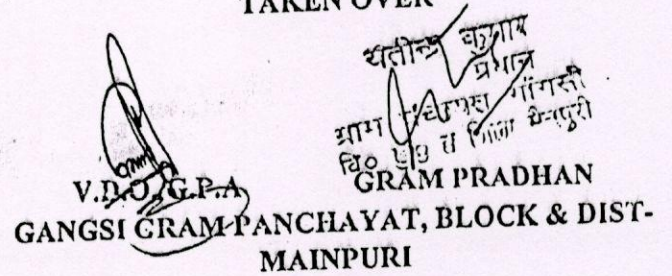 TAKEN OVER
यतीन्द्र कुमार
प्रधान
ग्राम पंचायत गांगसी
वि० ख० व जिला मैनपुरी
V.D.O/G.P.A
GRAM PRADHAN
GANGSI GRAM PANCHAYAT, BLOCK & DIST-
MAINPURI